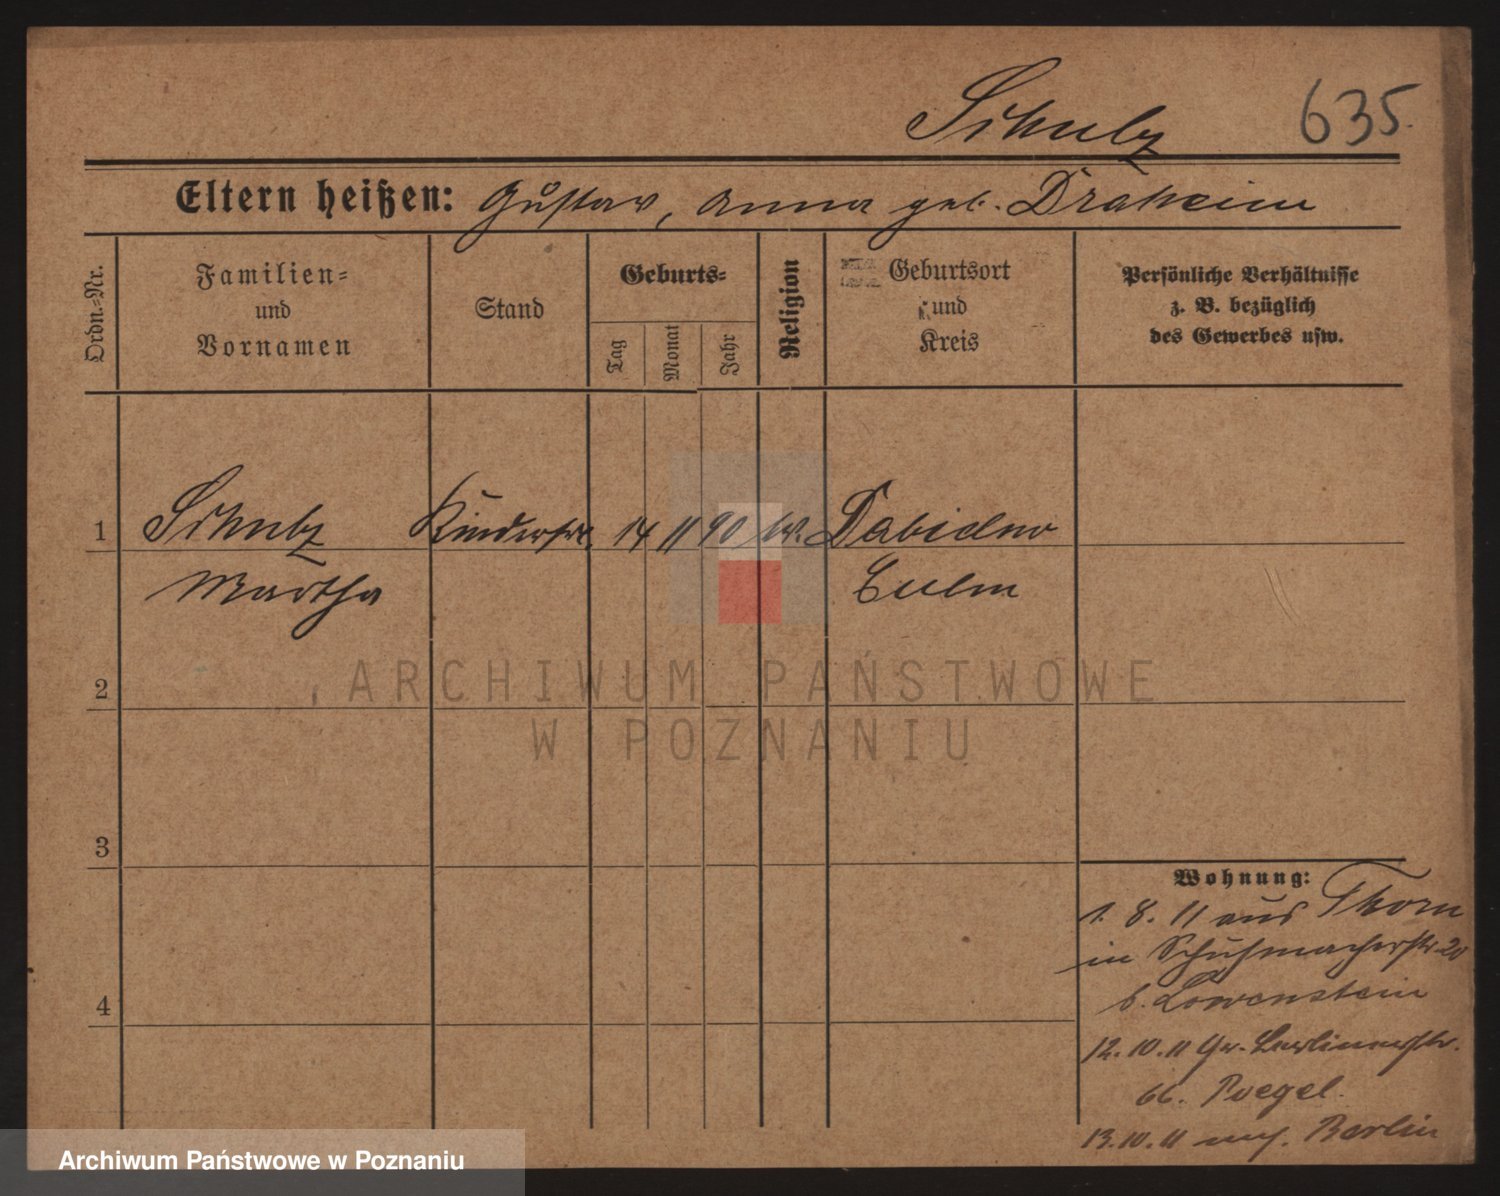 Schulz 635.
Eltern heißen: Gustav, Anna geb. Draheim
Ordn.-Nr.
Familien-
und
Vornamen
Stand
Geburts-
Tag
Monat
Jahr
Religion
Geburtsort
und
Kreis
Persönliche Verhältnisse
z. B. bezüglich
des Gewerbes usw.
1 Schulz Kinderfrl. 14 11 90 Dabielno
Martha Culm
2
3
4
Wohnung:
1. 8. 11 aus Thorn
in Schuhmacherstr. 20
b. Löwenstein
12. 10. 11 Gr. Berlinerstr.
66. Poegel.
13. 10. 11 Berlin
ARCHIWUM PAŃSTWOWE
W POZNANIU
Archiwum Państwowe w Poznaniu